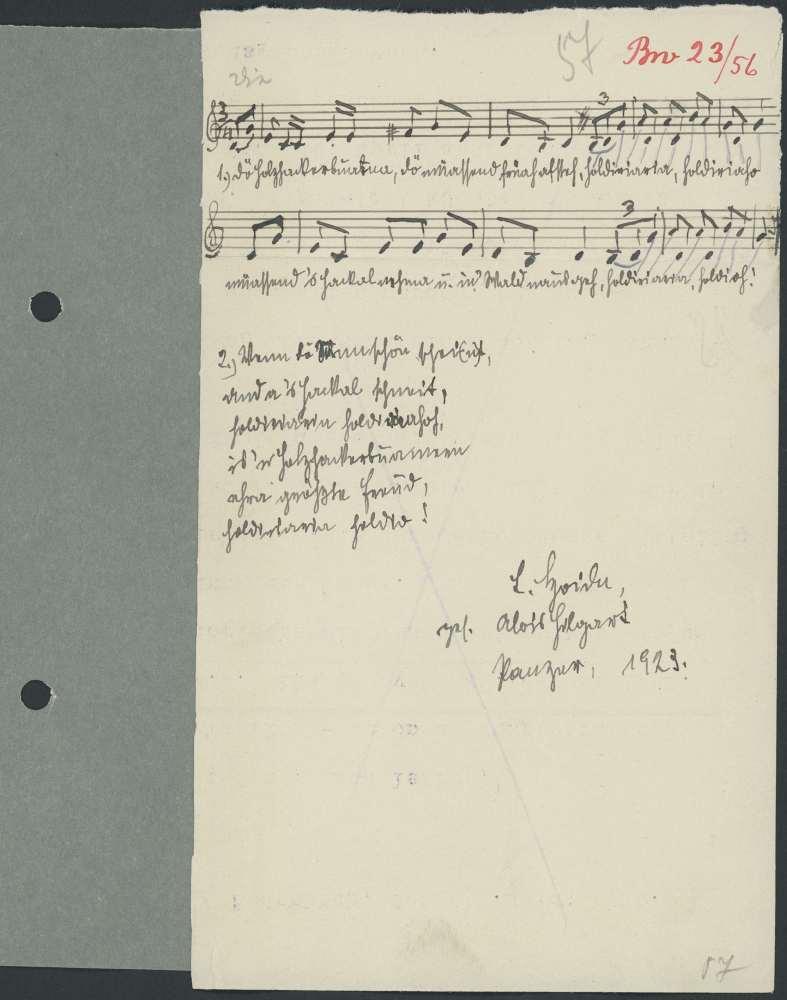 57 Bw 23/56
3
1.) Dö Holzhackerbuama, dö müassend fruah afsteh, holdiriaria, holdiriaho
3
müassend 's Hackal nehma u. in Wald nausgeh, holdiriaria, holdioh!
2.) Wenn dö Sunn schön scheint,
und a 's Hackal schneit,
holdiriaria holdriahoh,
is 'n Holzhackerbuamern
ehra größte Freud,
holdriaria holdio!
L. Hoidn,
ges. Alois Hilgart
Panzer, 1923.
57